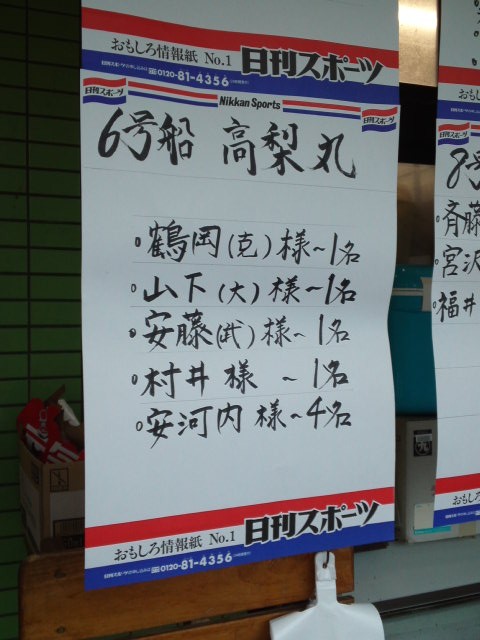 おもしろ情報紙 No.1 日刊スポーツ
0120-81-4356
日刊スポーツ Nikkan Sports 日刊スポーツ
6号船 高梨丸
鶴岡(克)様~1名
山下(大)様~1名
安藤(武)様~1名
村井様 ~1名
安河内様~4名
おもしろ情報紙 No.1 日刊スポーツ
0120-81-4356
おもし
日刊スポーツ
8号
斉藤
宮沢
福井
おもしろ